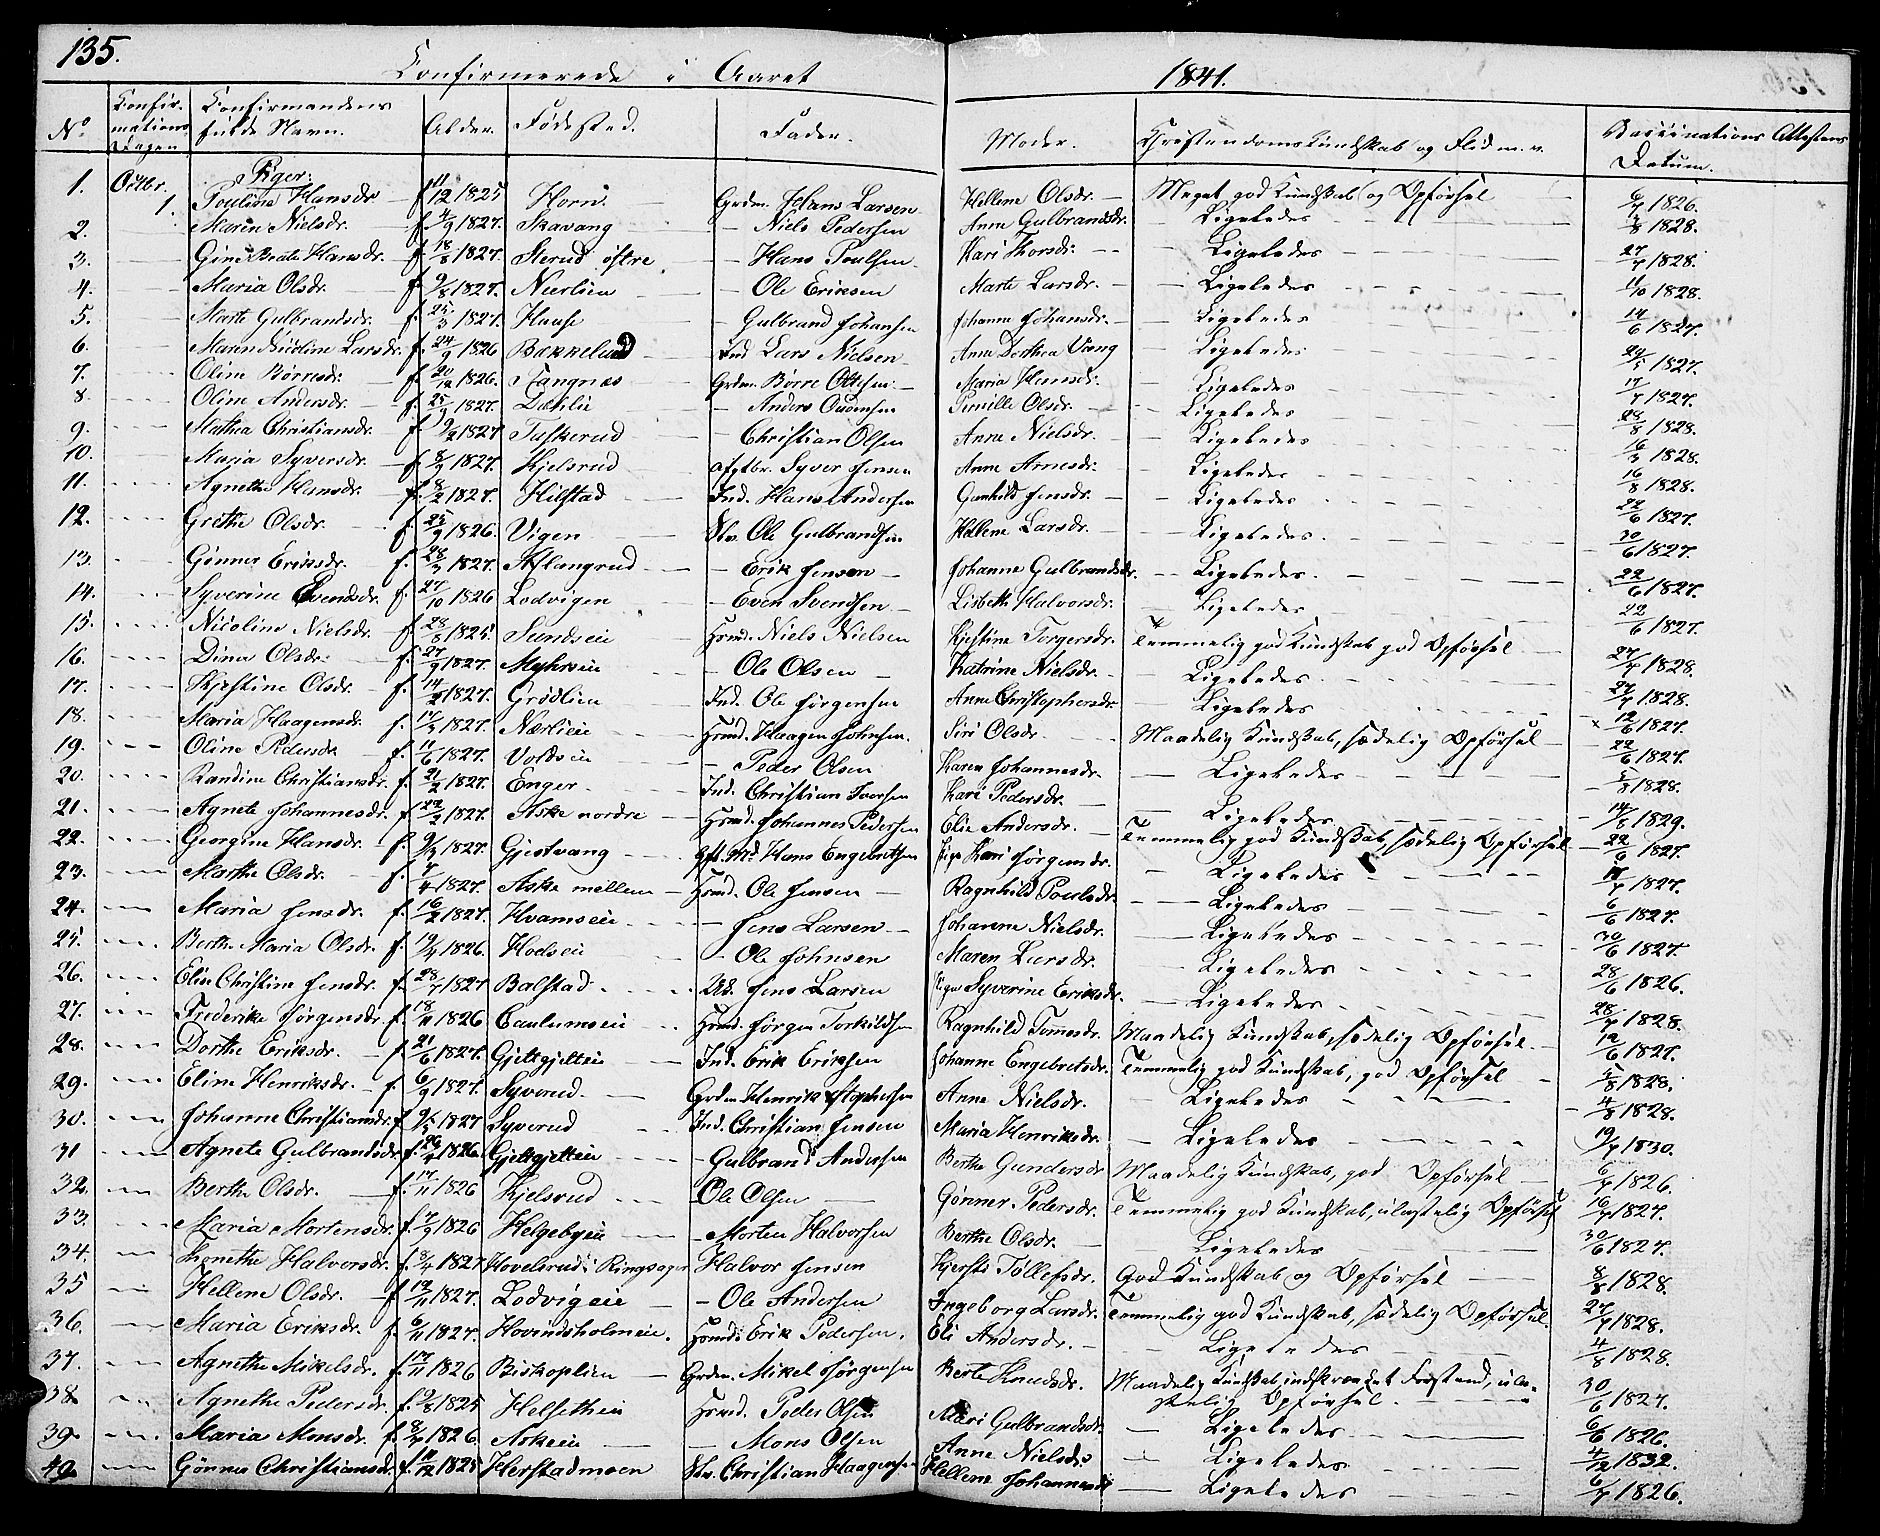 135.
Confirmerede i Aaret 1841.
No Confirmations Dagen Confirmandens fulde Navn. Alder. Fødested. Fader. Moder. Christendoms Kundskab og Flid m. v. Vaccinations Attestens Datum.
Piger:
1. Octbr. 1. Pouline Hansdr f 11/12 1825 Horn Grdm. Hans Larsen Hellene Olsdr. Meget god Kundskab og Opførsel 6/7 1826.
2. Maren Nielsdr. f. 4/9 1827. Skavang - Niels Pedersen Anne Gulbrandsdr. Ligeledes 7/8 1828.
3. Gine Beate Hansdr. f. 18/8 1827. Sterud østre - Hans Poulsen Kari Thorsdr: Ligeledes 27/7 1828.
4. Maria Olsdr. f. 9/8 1827. Nærlien - Ole Eriksen Marte Larsdr. Ligeledes 11/10 1828.
5. Marte Gulbrandsdr. f. 25/3 1827. - Gulbrand Johansen Johanne Johansdr. Ligeledes 14/6 1827.
6. Maren Larsdr. f. 24/9 1826 Bakkelund Ind Lars Nielsen Anne Dorthea Vang Ligeledes 24/5 1827.
7. Oline Børresdr: f. 20/12 1826. Stangnæs Grdm. Børre Ottesen Maria Hansdr: Ligeledes 17/7 1827.
8. Oline Andersdr. f. 25/9 1827. Dæhlie - Anders Pernille Olsdr. Ligeledes 28/8 1828.
9. Mathea Christiansdr. f 9/2 1827 Tuskerud - Christian Olsen Anne Nielsdr. Ligeledes 16/3 1828.
10. Maria Syversdr. f. 8/9 1827. Kjelsrud Syver Jensen Anne Arnesdr: Ligeledes 16/8 1828.
11. Agnethe Hansdr. f. 8/2 1827. Hilstad Ind. Hans Andersen Gunhild Jensdr. Ligeledes 22/6 1827.
12. Grethe Olsdr. f. 25/9 1826. Vigen Ole Gulbrandsen Hellene Larsdr. Ligeledes 30/6 1827.
13. Gønner Eriksdr. f. 28/3 1827. Aslangrud - Erik Jensen Johanne Gulbrandsdr. Ligeledes 22/6 1827.
14. Syverine Evensdr. f. 27/10 1826 Lodvigen - Even Svendsen Lisbeth Halvorsdr. Ligeledes 22/6 1827.
15. Nicoline Nielsdr. f. 28/8 1825. Sundseie Huusm. Niels Nielsen Kjestine Torgersdr. Temmelig god Kundskab god Opførsel 27/7 1828.
16. Dina Olsdr. f. 27/9 1827. Myhreie - Ole Olsen Katrine Nielsdr. Ligeledes 27/7 1828.
17. Kjestine Olsdr. f. 14/2 1827. Grødlien Ind. Ole Jørgensen Anne Christophersdr. Ligeledes 12/6 1827.
18. Maria Haagensdr. f. 17/3 1827. Nærlieie Huusm. Haagen Johnsen Siri Olsdr. Maadelig Kundskab, sædelig Opførsel 22/6 1827.
19. Oline Pedersdr f. 11/6 1827. Voldseie - Peder Olsen Karen Johannesdr. Ligeledes 1828.
20. Randine Christiansdr. f. 21/2 1827. Enger Ind. Christian Iversen Kari Pedersdr. Ligeledes 14/8 1829.
21. Agnete Johannesdr. f 22/2 1827. Aske nordre Huusm. Johannes Pedersen Elie Andersdr. Temmelig god Kundskab, sædelig Opførsel 22/6 1827.
22. Georgine Hansdr. f. 9/2 1827. Gjestvang Hans Engebretsen Pige Kari Jørgensdr. Ligeledes 17/7 1827.
23. Marthe Olsdr. f. 7/4 1827. Aske mellem Huusm. Ole Jensen Ragnhild Poulsdr. Ligeledes 6/6 1827.
24. Maria Jensdr. f. 16/2 1827. Hvamseie - Jens Larsen Johanne Nielsdr. Ligeledes 30/6 1827.
25. Berthe Maria Olsdr. f. 19/4 1826. Hodseie - Ole Johnsen Maren Larsdr. Ligeledes 28/6 1826.
26. Elin Christine Jensdr. f. 28/7 1827 Balstad Jens Larsen Pige Syverine Eriksdr. Ligeledes 28/7 1828.
27. Frederike Jørgensdr f. 18/11 1826 Caulumseie Huusm. Jørgen Torkildsen Ragnhild Tomesdr. Maadelig Kundskab, sædelig Opførsel 12/6 1827.
28. Dorthe Eriksdr. f. 21/6 1827. Gjeltgjelteie Ind. Erik Eriksen Johanne Engebretsdr. Temmelig god Kundskab, god Opførsel 5/8 1828.
29. Eline Henriksdr. f. 6/9 1827. Syverud. Grdm. Henrik Anne Nielsdr. Ligeledes 4/8 1828.
30. Johanne Christiansdr. f 9/5 1827 Syverud Ind. Christian Jensen Maria Henriksdr. Ligeledes 19/7 1830.
31 Agnete Gulbrandsdr f. 29/7 1826. Gjeltgjelteie - Gulbrand Andersen Berthe Gundersdr Maadelig Kundskab, god Opførsel 6/7 1826.
32. Berthe Olsdr. f. 17/11 1826 Kjelsrud - Ole Olsen Gønner Pedersdr. Temmelig god Kundskab, ulastelig Opførsel 16/7 1827.
33. Maria Mortensdr. f 7/9 1826 Helgebyeie - Morten Halvorsen Berthe Olsdr. Ligeledes 30/6 1827.
34. Thonethe Halvorsdr. f. 8/4 1827 Hovelsrud i Ringsager Halvor Jensen Kjersti Tollefsdr. God Kundskab og Opførsel 8/8 1828.
35 Hellene Olsdr. f 19/11 1827. Lodvigeie - Ole Andersen Ingeborg Larsdr. Temmelig god Kundskab, sædelig Opførsel. 27/7 1828.
36. Maria Eriksdr. f. 6/11 1827. Hovindsholmeie. Huusmd. Erik Pedersen. Eli Andersdr. Ligeledes 4/8 1828.
37. Agnethe Mikelsdr. f. 17/11 1826 Biskoplien Grdm. Mikel Jørgensen Berte Knudsdr. Maadelig Kundskab, indskrænket Forstand, ulastelig Opførsel. 30/6 1827.
38 Agnethe Pedersdr. f. 9/8 1825 Helsetheie Huusm. Peder Olsen Mari Gulbrandsdr. Ligeledes 6/6 1826.
39. Maria Monsdr. f. 8/7 1826. Askeie - Mons Olsen Anne Nielsdr Ligeledes 4/12 1832.
40. Gønner Christiansdr. f. 11/12 1825 Herstadmoen Christian Haagensen Hellene Johannesdr Ligeledes 6/7 1826.